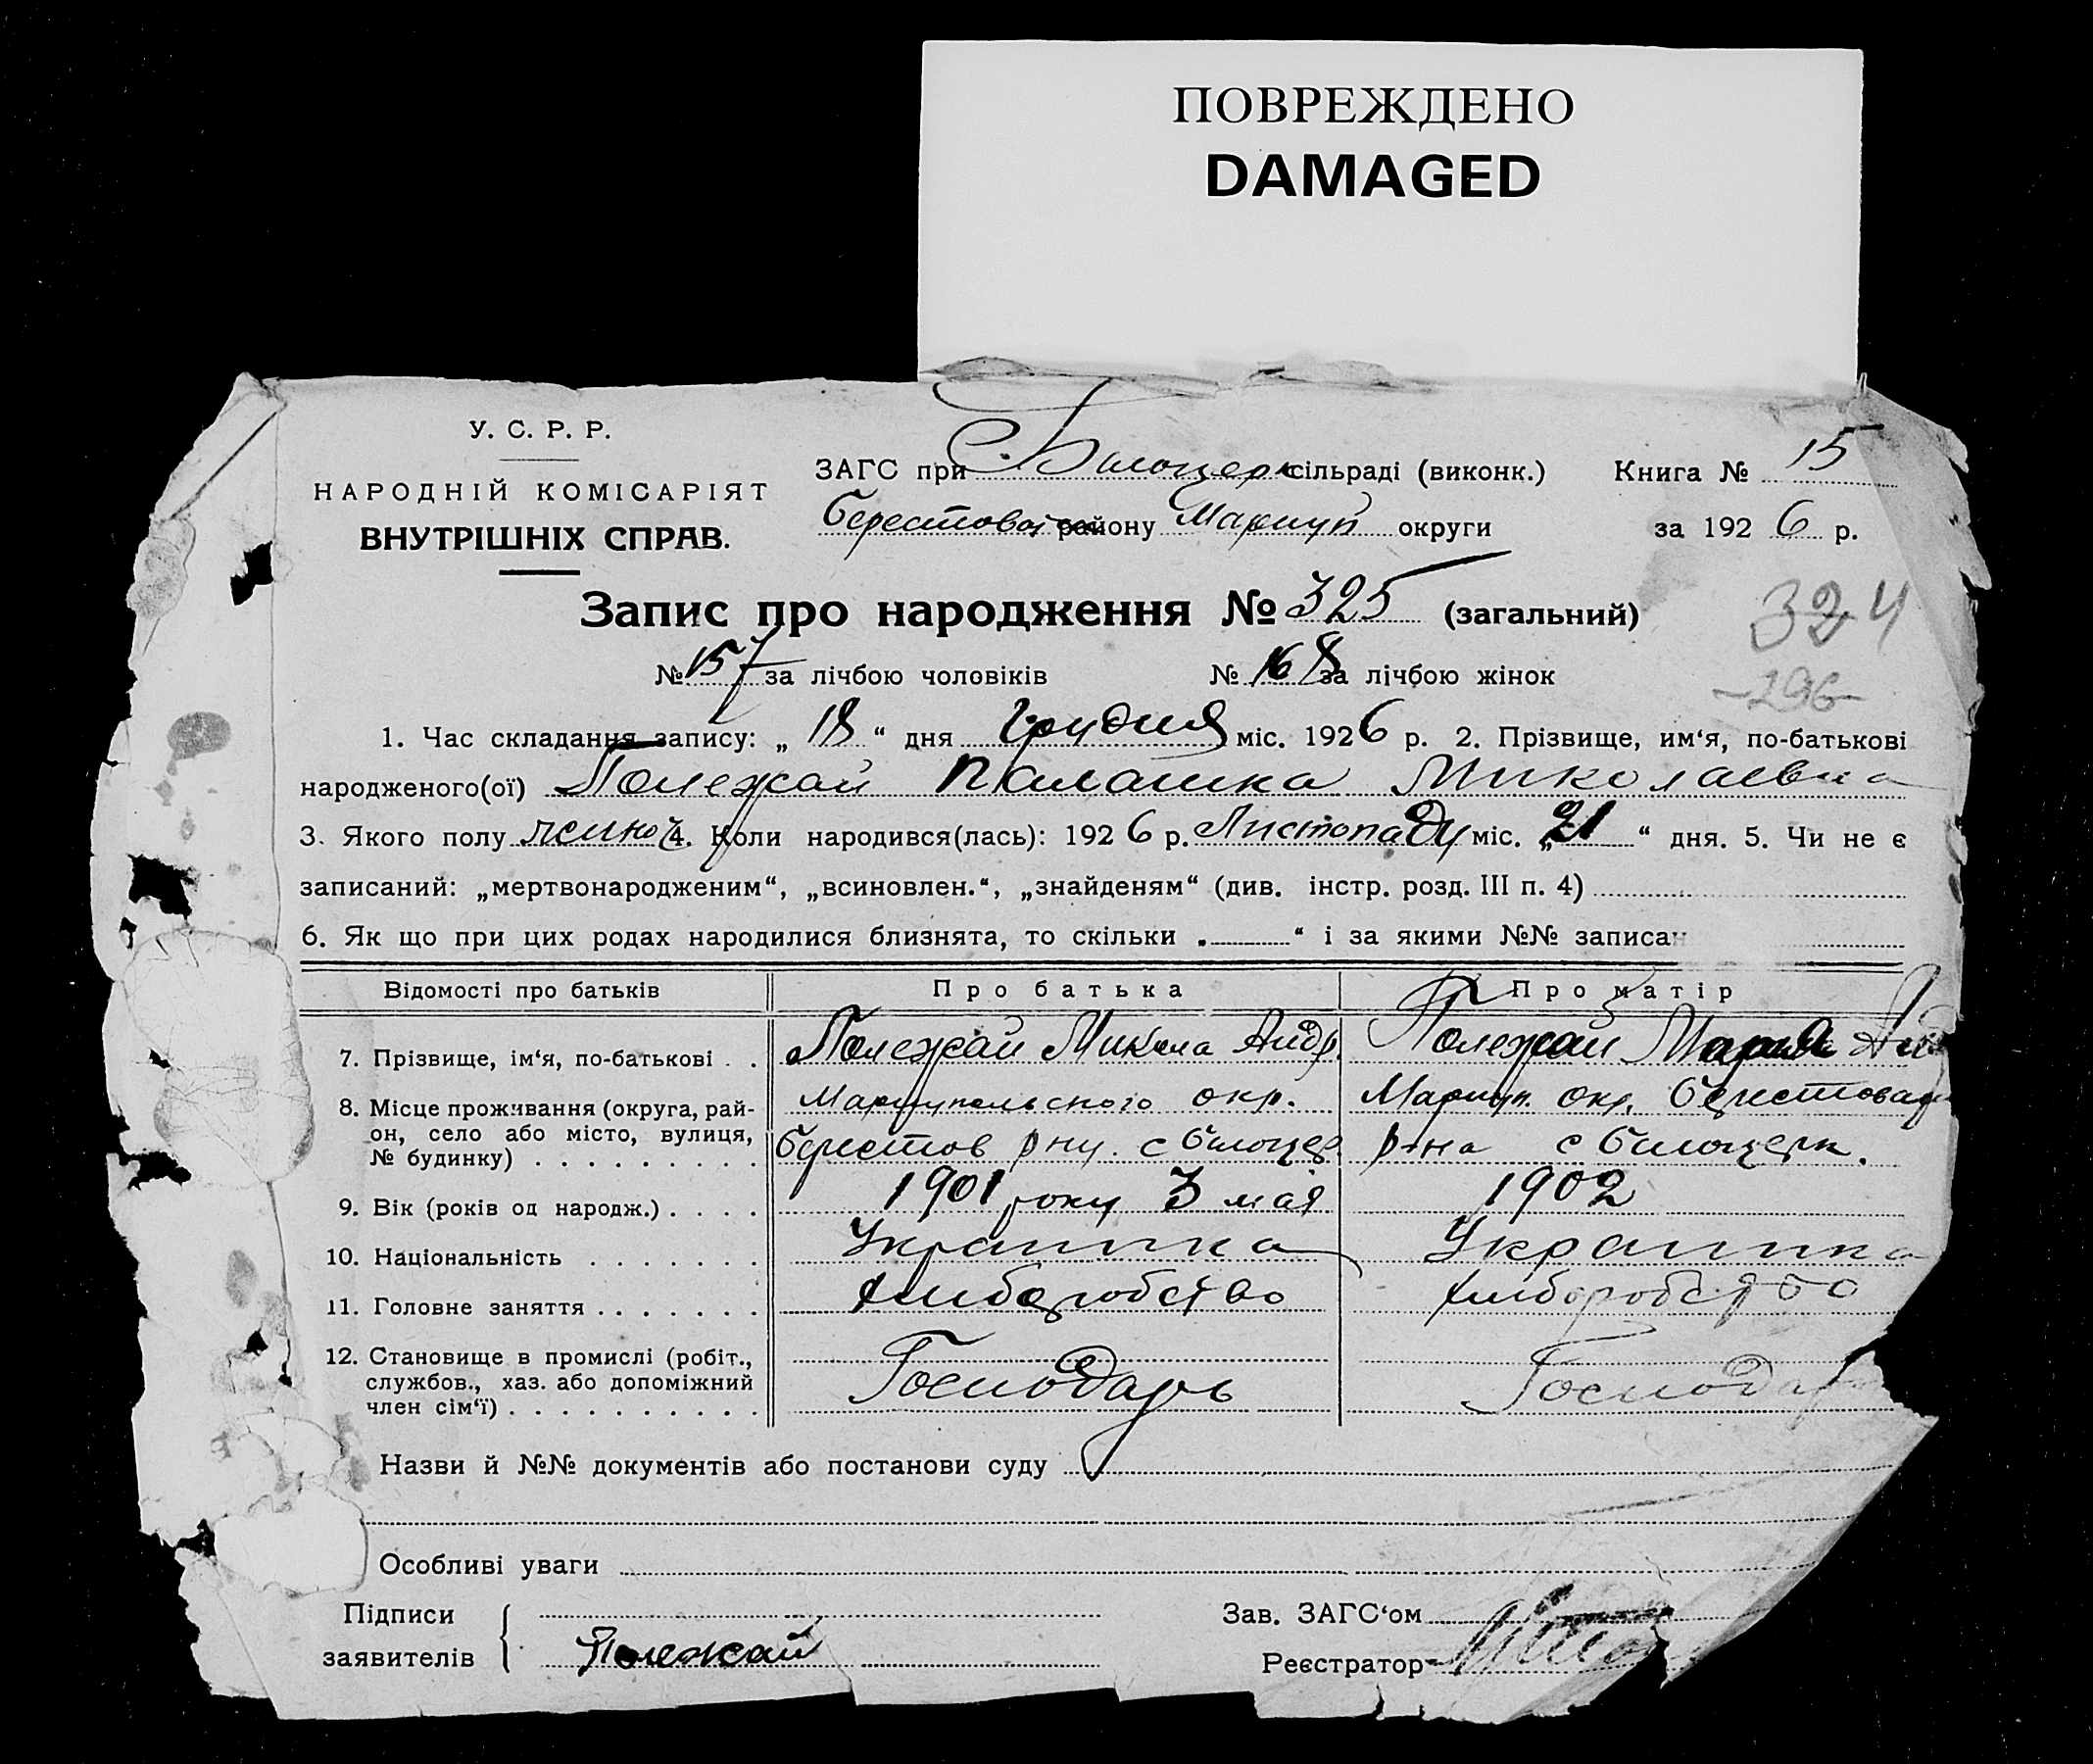 ПОВРЕЖДЕНО
DAMAGED
У. С. Р. Р.
НАРОДНІЙ КОМІСАРІЯТ
ВНУТРІШНІХ СПРАВ.
ЗАГС при С. Білоцерк сільраді (виконк.) Книга № 15
Берестовог району Маріуп округи за 1926 р.
Запис про народження № 325 (загальний)
324
№ 157 за лічбою чоловіків № 168 за лічбою жінок
-196-
1. Час складання запису: „ 18 “ дня Грудня міс. 1926 р. 2. Прізвище, им‘я, по-батькові
народженого(ої) Полежай Палашка Миколаевна
3. Якого полу жіноч 4. Коли народився(лась): 1926 р. Листопаду міс. „ 21 “ дня. 5. Чи не є
записаний: „мертвонародженим“, „всиновлен.“, „знайденям“ (див. інстр. розд. III п. 4)
6. Як що при цих родах народилися близнята, то скільки „ “ і за якими №№ записан
Відомості про батьків Про батька Про матір
7. Прізвище, ім‘я, по-батькові . . Полежай Микола Андр. Полежай Мария
8. Місце проживання (округа, рай- Мариупольского окр. Мариуп. окр. Берестоваг
он, село або місто, вулиця, Берестов рну. с Билоцер. р-на с Билоцерк.
№ будинку)
9. Вік (років од народж.) . . . . 1901 року 3 мая 1902
10. Національність Украинка Украинка
11. Головне заняття Хлиборобство Хлиборобство
12. Становище в промислі (робіт.,
службов., хаз. або допоміжний Господарь Господар
член сім‘ї)
Назви й №№ документів або постанови суду
Особливі уваги
Підписи Зав. ЗАГС‘ом
заявителів Полежай Реєстратор